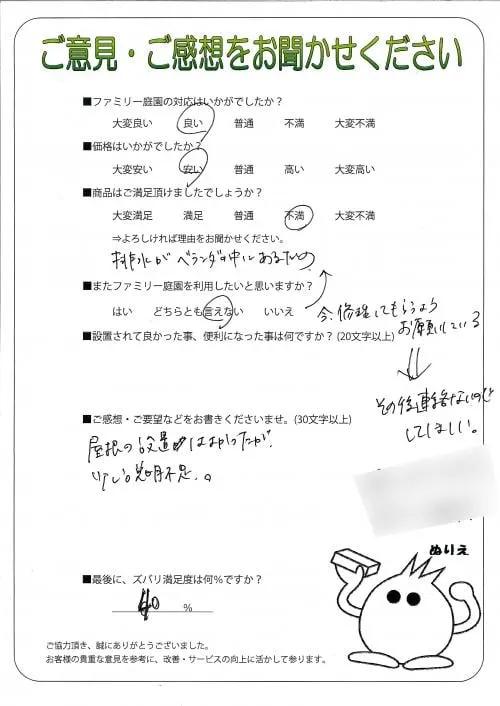 ご意見・ご感想をお聞かせください
■ファミリー庭園の対応はいかがでしたか？
大変良い 良い 普通 不満 大変不満
■価格はいかがでしたか？
大変安い 安い 普通 高い 大変高い
■商品はご満足頂けましたでしょうか？
大変満足 満足 普通 不満 大変不満
⇒よろしければ理由をお聞かせください。
排水がベランダの中にあるため
■またファミリー庭園を利用したいと思いますか？
はい どちらとも言えない いいえ
今、修理してもらうよう
お願いしている
■設置されて良かった事、便利になった事は何ですか？(20文字以上)
その後連絡ないので
してほしい。
■ご感想・ご要望などをお書きくださいませ。(30文字以上)
屋根の設置はよかったが、
説明不足。
ぬりえ
■最後に、ズバリ満足度は何％ですか？
40 ％
ご協力頂き、誠にありがとうございました。
お客様の貴重な意見を参考に、改善・サービスの向上に活かして参ります。